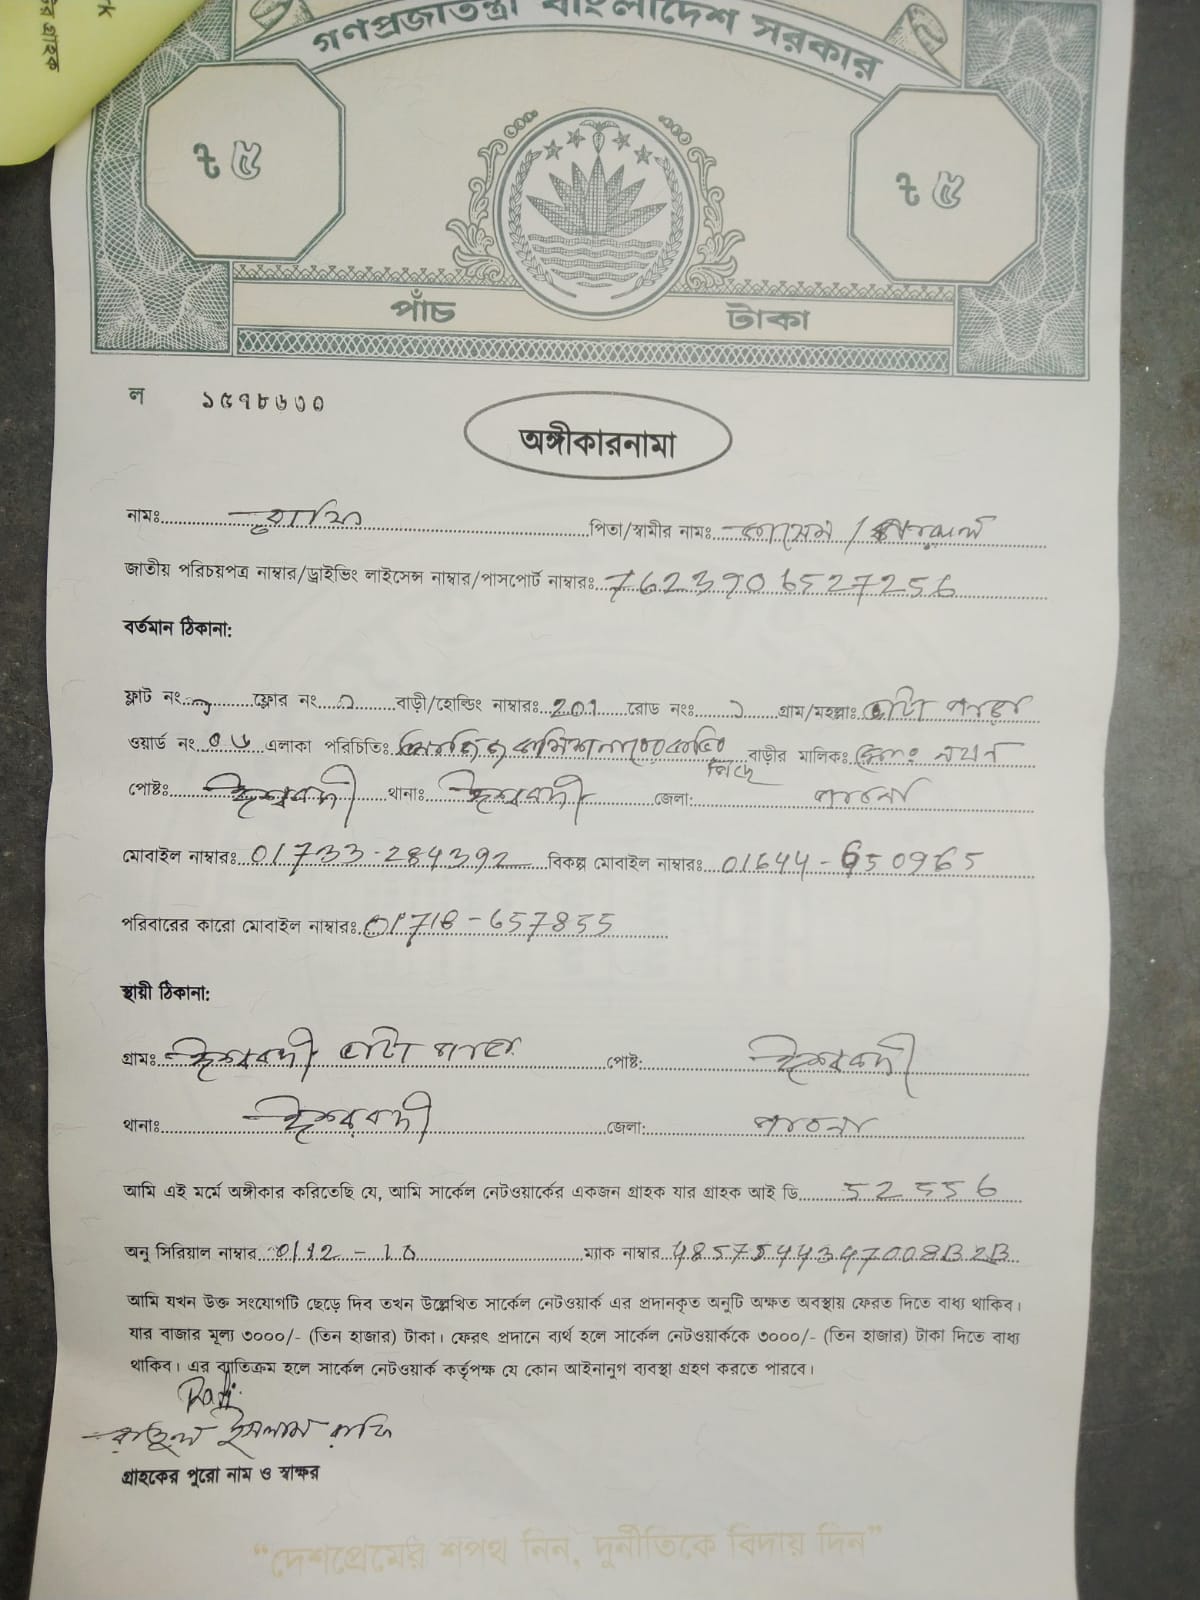 র্ক
টর গ্রাহক
গণপ্রজাতন্ত্রী বাংলাদেশ সরকার
৳ ৫
৳ ৫
পাঁচ টাকা
ল ১৫৭৮৬৩০
অঙ্গীকারনামা
নামঃ রাফি পিতা/স্বামীর নামঃ
জাতীয় পরিচয়পত্র নাম্বার/ড্রাইভিং লাইসেন্স নাম্বার/পাসপোর্ট নাম্বারঃ 7623906527256
বর্তমান ঠিকানা:
ফ্লাট নং ফ্লোর নং বাড়ী/হোল্ডিং নাম্বারঃ 201 রোড নংঃ ১ গ্রাম/মহল্লাঃ
ওয়ার্ড নং ০৬ এলাকা পরিচিতিঃ বাড়ীর মালিকঃ মোঃ নয়ন
পিছে
পোষ্টঃ ঈশ্বরদী থানাঃ ঈশ্বরদী জেলা: পাবনা
মোবাইল নাম্বারঃ 01733-284392 বিকল্প মোবাইল নাম্বারঃ 01644-650965
পরিবারের কারো মোবাইল নাম্বারঃ 01718-657855
স্থায়ী ঠিকানা:
গ্রামঃ ঈশ্বরদী পোষ্ট: ঈশ্বরদী
থানাঃ ঈশ্বরদী জেলা: পাবনা
আমি এই মর্মে অঙ্গীকার করিতেছি যে, আমি সার্কেল নেটওয়ার্কের একজন গ্রাহক যার গ্রাহক আই ডি 52556
অনু সিরিয়াল নাম্বার 0112-10 ম্যাক নাম্বার 4857544347008B2B
আমি যখন উক্ত সংযোগটি ছেড়ে দিব তখন উল্লেখিত সার্কেল নেটওয়ার্ক এর প্রদানকৃত অনুটি অক্ষত অবস্থায় ফেরত দিতে বাধ্য থাকিব।
যার বাজার মূল্য ৩০০০/- (তিন হাজার) টাকা। ফেরৎ প্রদানে ব্যর্থ হলে সার্কেল নেটওয়ার্ককে ৩০০০/- (তিন হাজার) টাকা দিতে বাধ্য
থাকিব। এর ব্যতিক্রম হলে সার্কেল নেটওয়ার্ক কর্তৃপক্ষ যে কোন আইনানুগ ব্যবস্থা গ্রহণ করতে পারবে।
Rafi
রাতুল ইসলাম রাফি
গ্রাহকের পুরো নাম ও স্বাক্ষর
“দেশপ্রেমের শপথ নিন, দুর্নীতিকে বিদায় দিন”